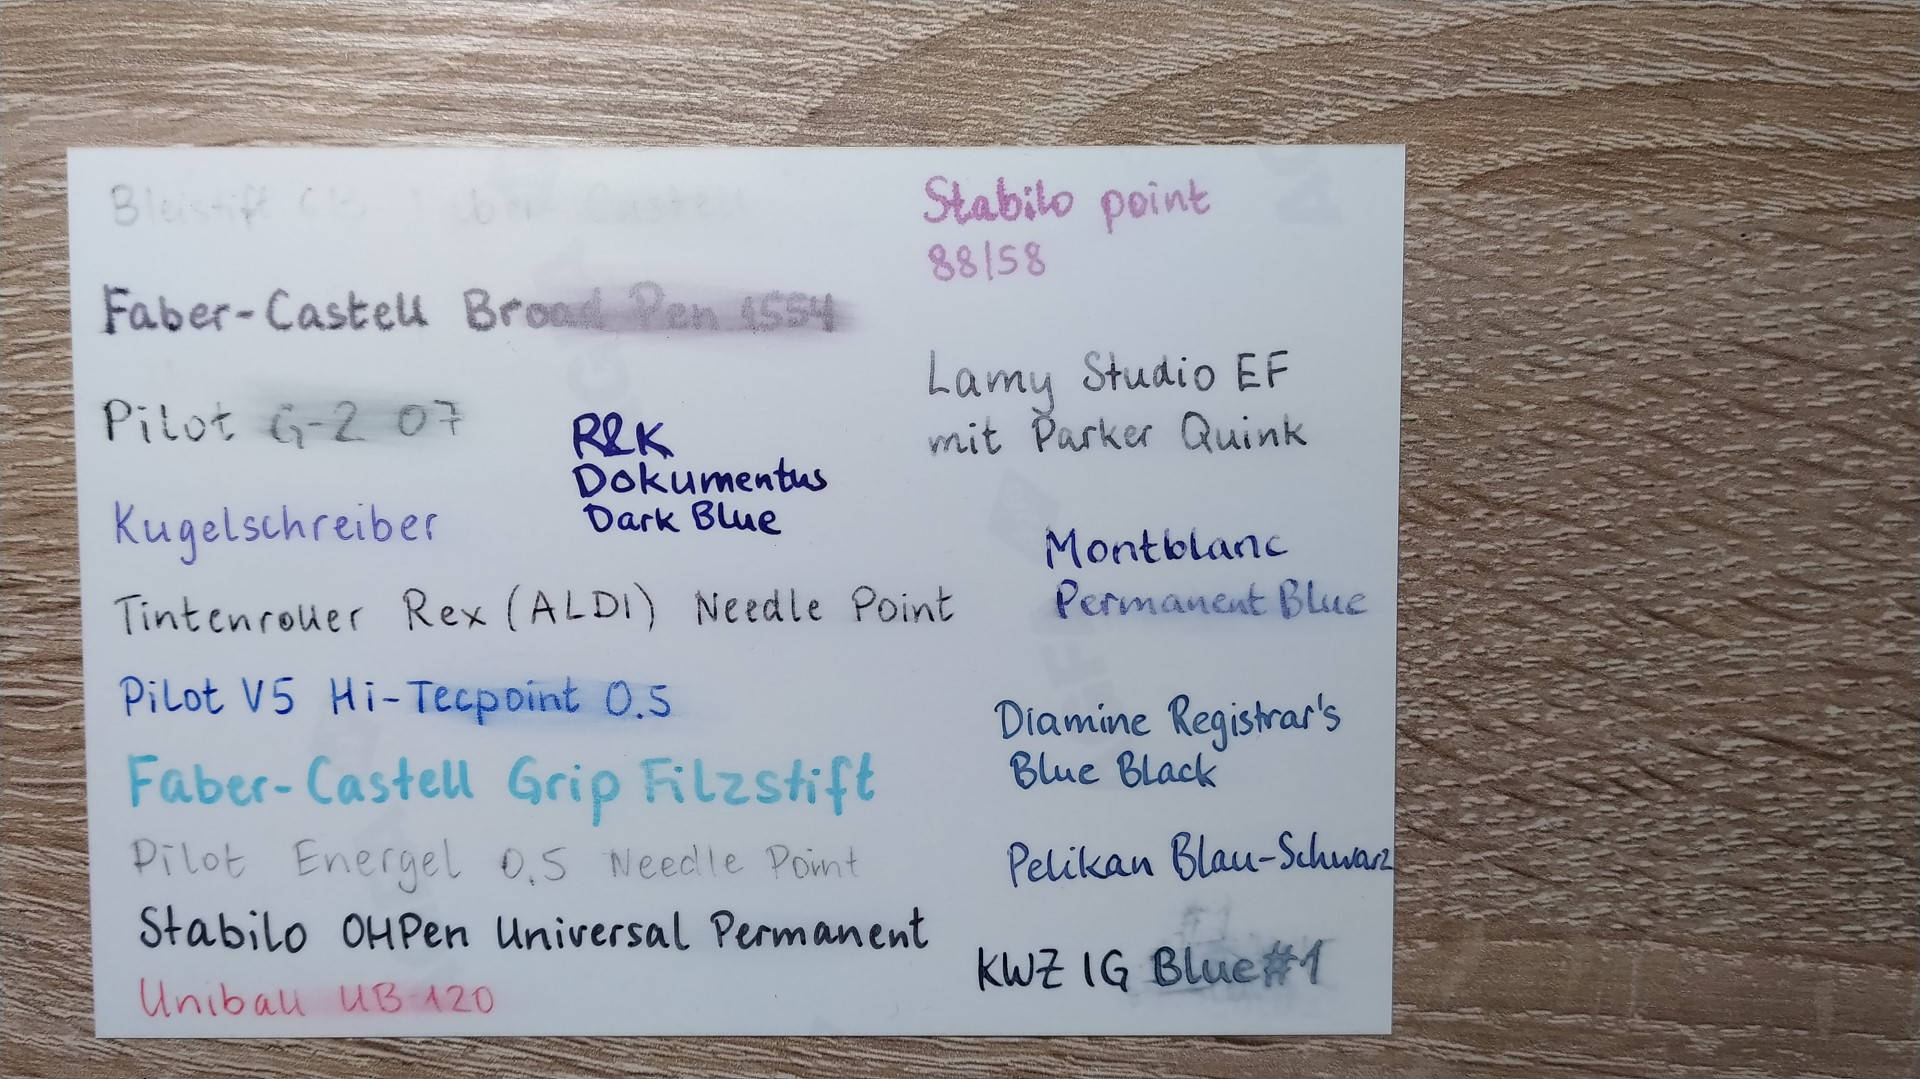 Stabilo point
88/58
Faber-Castell Broad Pen 1554
Lamy Studio EF
mit Parker Quink
Pilot G-2 07
R&K
Dokumentus
Dark Blue
Kugelschreiber
Montblanc
Permanent Blue
Tintenroller Rex (ALDI) Needle Point
Pilot V5 Hi-Tecpoint 0.5
Diamine Registrar's
Blue Black
Faber-Castell Grip Filzstift
Pilot Energel 0.5 Needle Point
Pelikan Blau-Schwarz
Stabilo OHPen Universal Permanent
KWZ IG Blue #1
Uniball UB-120